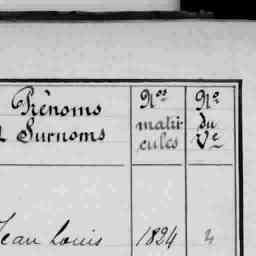 Prénoms
Surnoms
Nos
matri-
cules
No
du
Ve
Jean Louis 1824